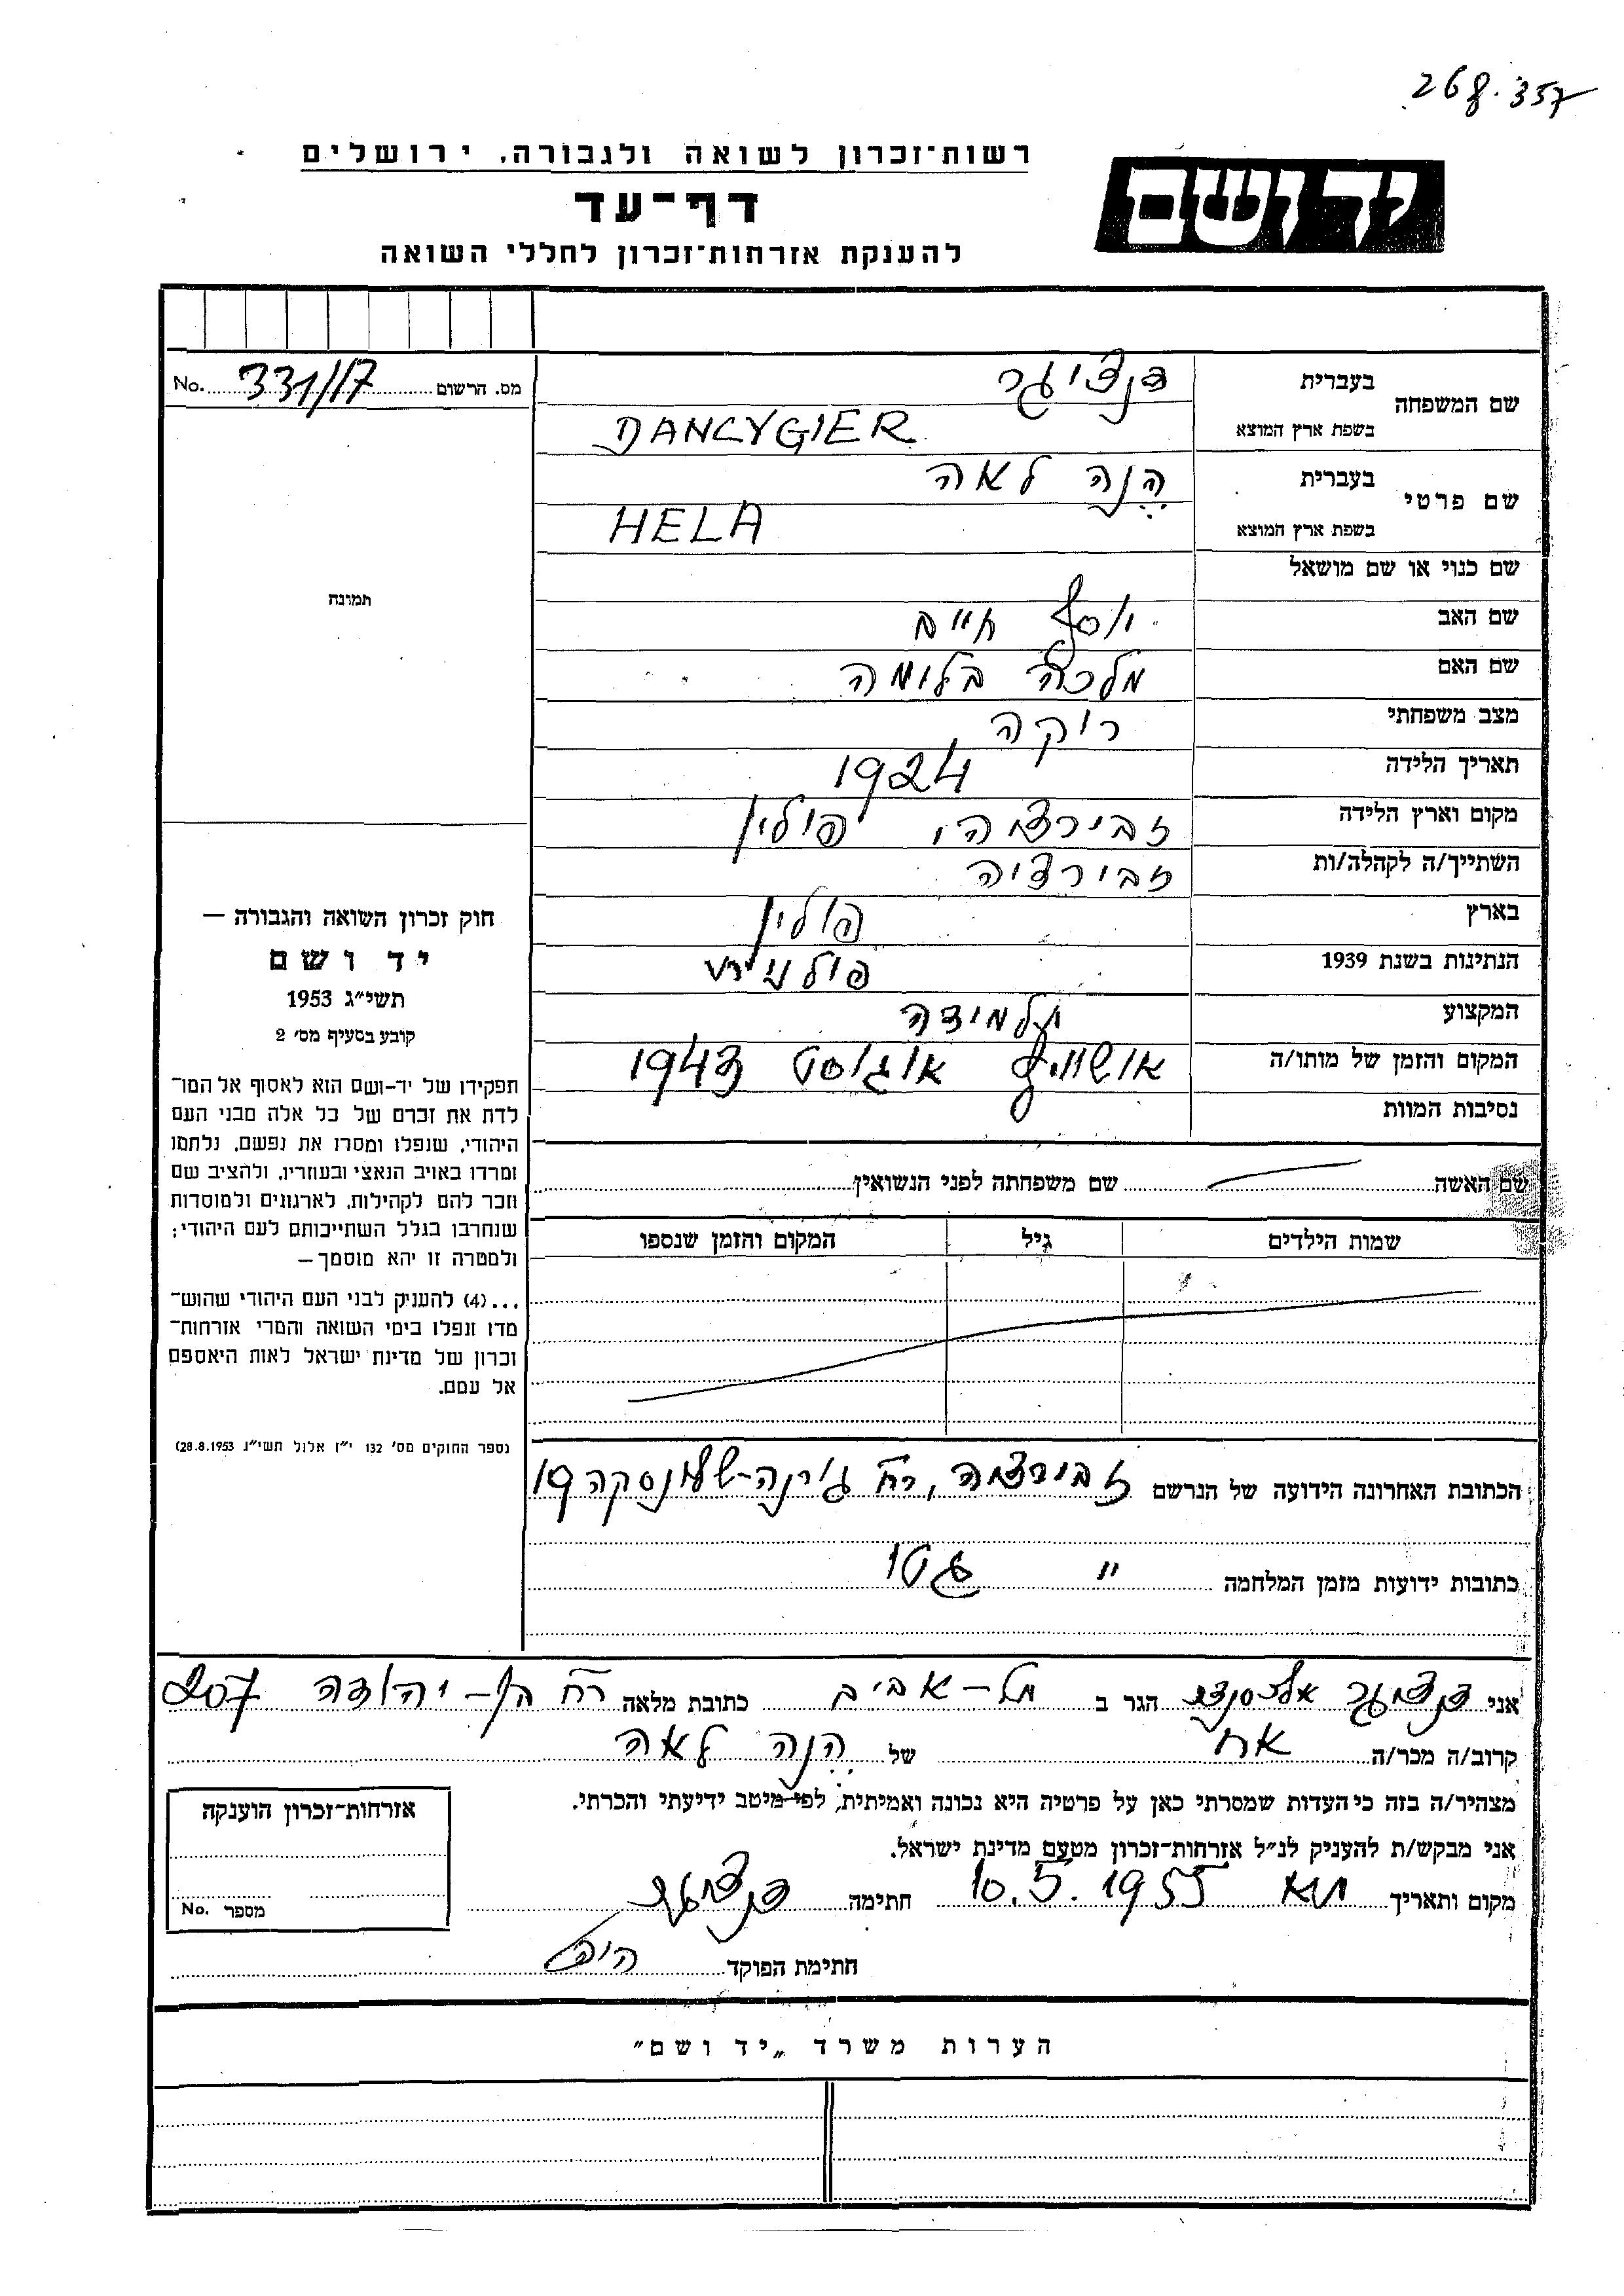 268.357
רשות־זכרון לשואה ולגבורה, ירושלים
יד ושם
דף־עד
להענקת אזרחות־זכרון לחללי השואה
מס. הרשום 331/17 No.
שם המשפחה
בעברית דנציגר
בשפת ארץ המוצא DANCYGIER
שם פרטי
בעברית הנה לאה
בשפת ארץ המוצא HELA
שם כנוי או שם מושאל
שם האב יוסף חיים
שם האם מלכה בלומה
מצב משפחתי רוקה
תאריך הלידה 1924
מקום וארץ הלידה זבירציה, פולין
השתייך/ה לקהלה/ות זבירציה
בארץ פולין
הנתינות בשנת 1939 פולנית
המקצוע תלמידה
המקום והזמן של מותו/ה אושוויץ אוגוסט 1943
נסיבות המוות
שם האשה שם משפחתה לפני הנשואין
שמות הילדים גיל המקום והזמן שנספו
תמונה
חוק זכרון השואה והגבורה —
יד ושם
תשי״ג 1953
קובע בסעיף מס׳ 2
תפקידו של יד-ושם הוא לאסוף אל המו־
לדת את זכרם של כל אלה מבני העם
היהודי, שנפלו ומסרו את נפשם, נלחמו
ומרדו באויב הנאצי ובעוזריו, ולהציב שם
וזכר להם לקהילות, לארגונים ולמוסדות
שנחרבו בגלל השתייכותם לעם היהודי;
ולמטרה זו יהא מוסמך —
...(4) להעניק לבני העם היהודי שהוש־
מדו ונפלו בימי השואה והמרי אזרחות־
זכרון של מדינת ישראל לאות היאספם
אל עמם.
(ספר החוקים מס׳ 132 י״ז אלול תשי״ג 28.8.1953)
הכתובת האחרונה הידועה של הנרשם זבירציה, רח׳ גורנה-שלונסקה 19
כתובות ידועות מזמן המלחמה " גטו
אני דנציגר הגר ב תל-אביב כתובת מלאה רח׳ בן-יהודה 207
קרוב/ה מכר/ה אח של הנה לאה
מצהיר/ה בזה כי העדות שמסרתי כאן על פרטיה היא נכונה ואמיתית, לפי מיטב ידיעתי והכרתי.
אני מבקש/ת להעניק לנ״ל אזרחות־זכרון מטעם מדינת ישראל.
מקום ותאריך ת״א 10.5.1955 חתימה דנציגר
חתימת הפוקד
אזרחות־זכרון הוענקה
מספר No.
הערות משרד „יד ושם״